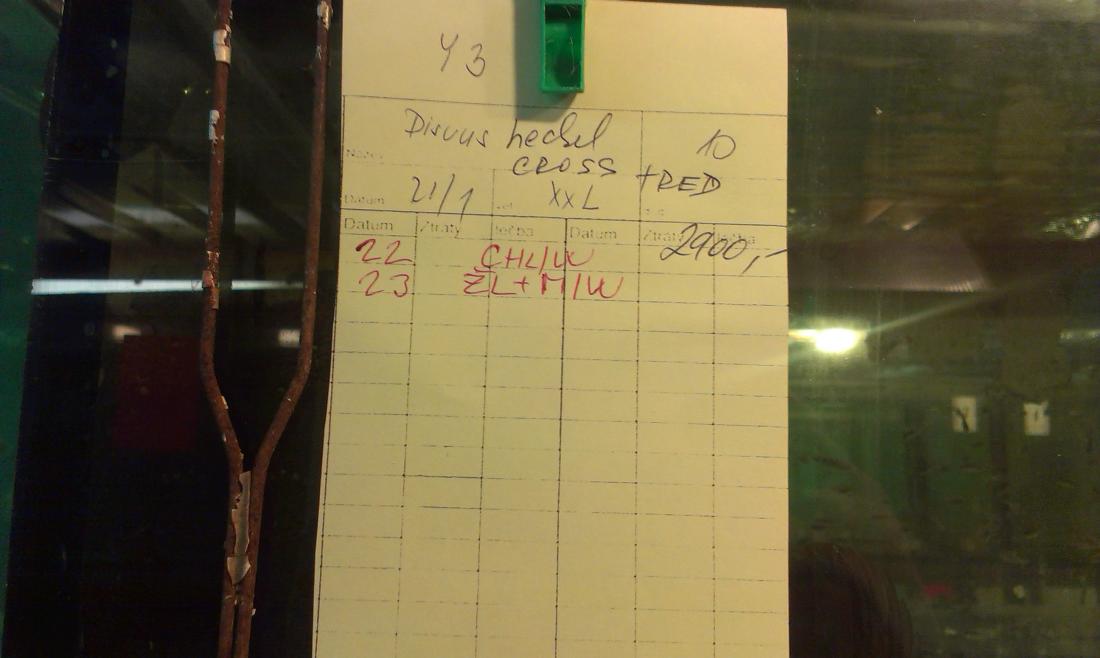 Y3
Discus heckel
CROSS +RED
10
Název
Datum 21/1
XXL
Datum Ztráty léčba Datum Ztráty léčba
2900,-
22 CHL/W
23 ŽL+M/W